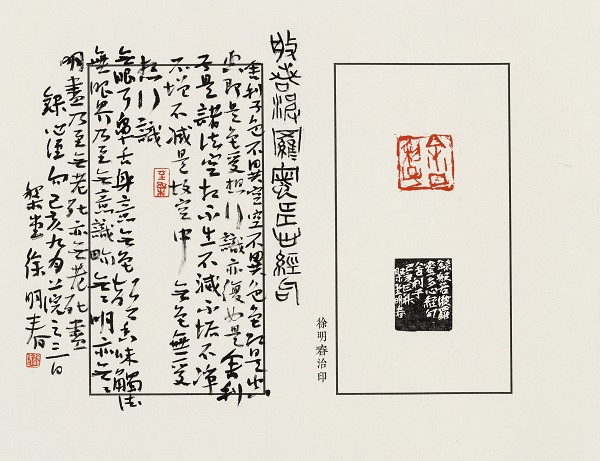 徐明春治印
般若波羅蜜多心經句
舍利子色不異空空不異色色即是空
空即是色受想行識亦復如是舍利
子是諸法空相不生不滅不垢不淨
不增不減是故空中無色無受
想行識
無眼耳鼻舌身意無色聲香味觸法
無眼界乃至無意識界無無明亦無無
明盡乃至無老死亦無老死盡
錄心經句己亥九月上浣之三日
堂徐明春